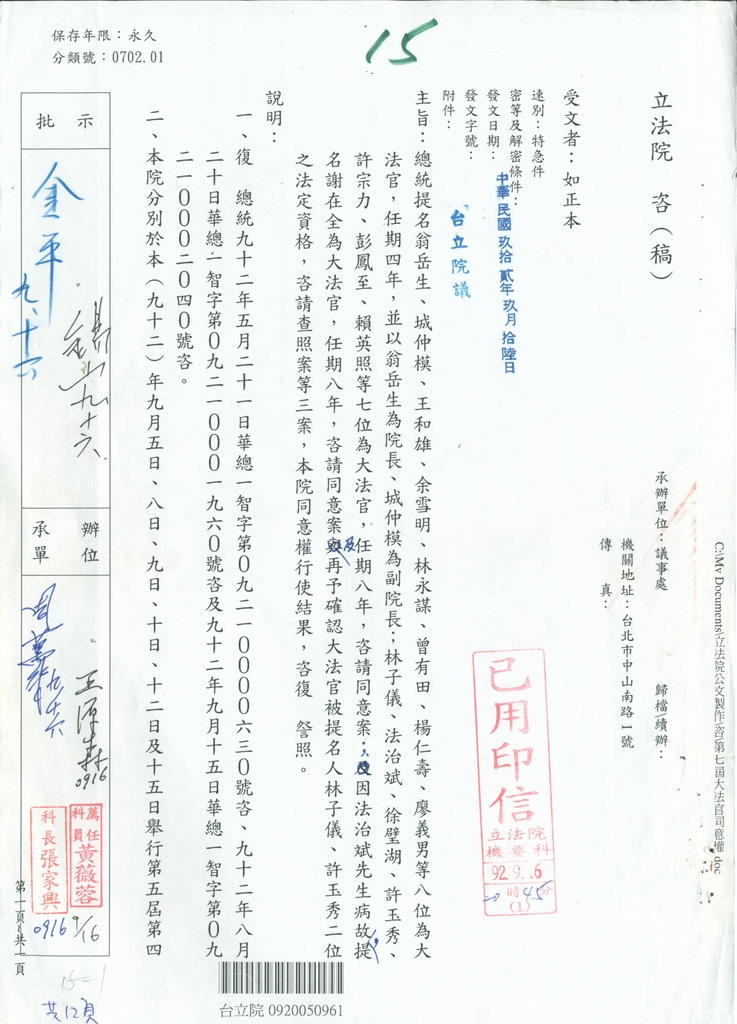 保存年限：永久
分類號：0702.01
15
C:\My Documents\立法院公文製作\咨\第七屆大法官同意權.doc
立法院　咨（稿）
承辦單位：議事處
歸檔/續辦：
機關地址：台北市中山南路1號
傳　真：
受文者：如正本
速別：特急件
密等及解密條件：
發文日期：中華民國玖拾貳年玖月拾陸日
發文字號：台立院議
附件：
主旨：總統提名翁岳生、城仲模、王和雄、余雪明、林永謀、曾有田、楊仁壽、廖義男等八位為大
法官，任期四年，並以翁岳生為院長、城仲模為副院長；林子儀、法治斌、徐璧湖、許玉秀、
許宗力、彭鳳至、賴英照等七位為大法官，任期八年，咨請同意案；及因法治斌先生病故，提
名謝在全為大法官，任期八年，咨請同意案及再予確認大法官被提名人林子儀、許玉秀二位
之法定資格，咨請查照案等三案，本院同意權行使結果，咨復　詧照。
說明：
一、復　總統九十二年五月二十一日華總一智字第０九二一００００六三０號咨、九十二年八月
二十日華總一智字第０九二一０００一九六０號咨及九十二年九月十五日華總一智字第０九
二一０００二０四０號咨。
二、本院分別於本（九十二）年九月五日、八日、九日、十日、十二日及十五日舉行第五屆第四
已用印信
立法院
機要科
92.9.16
時45分
(1)
批示
金平
九、十六
九十六、
承辦
單位
王
0916
薦任
科員
黃薇蓉
9/16
科長張家興
0916
第一頁，共一頁
15=1
共12頁
台立院 0920050961